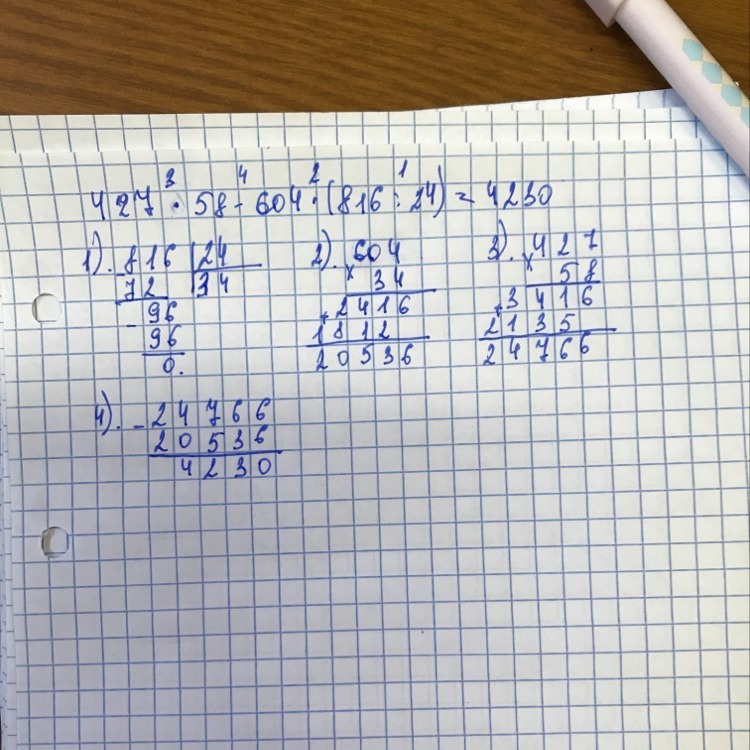 3 4 2 1
427 · 58 - 604 · (816 : 24) = 4230
1). 816 24 2). 604 3). 427
72 34 × 34 × 58
- 96 + 2416 + 3416
96 1812 2135
0. 20536 24766
4). - 24766
20536
4230